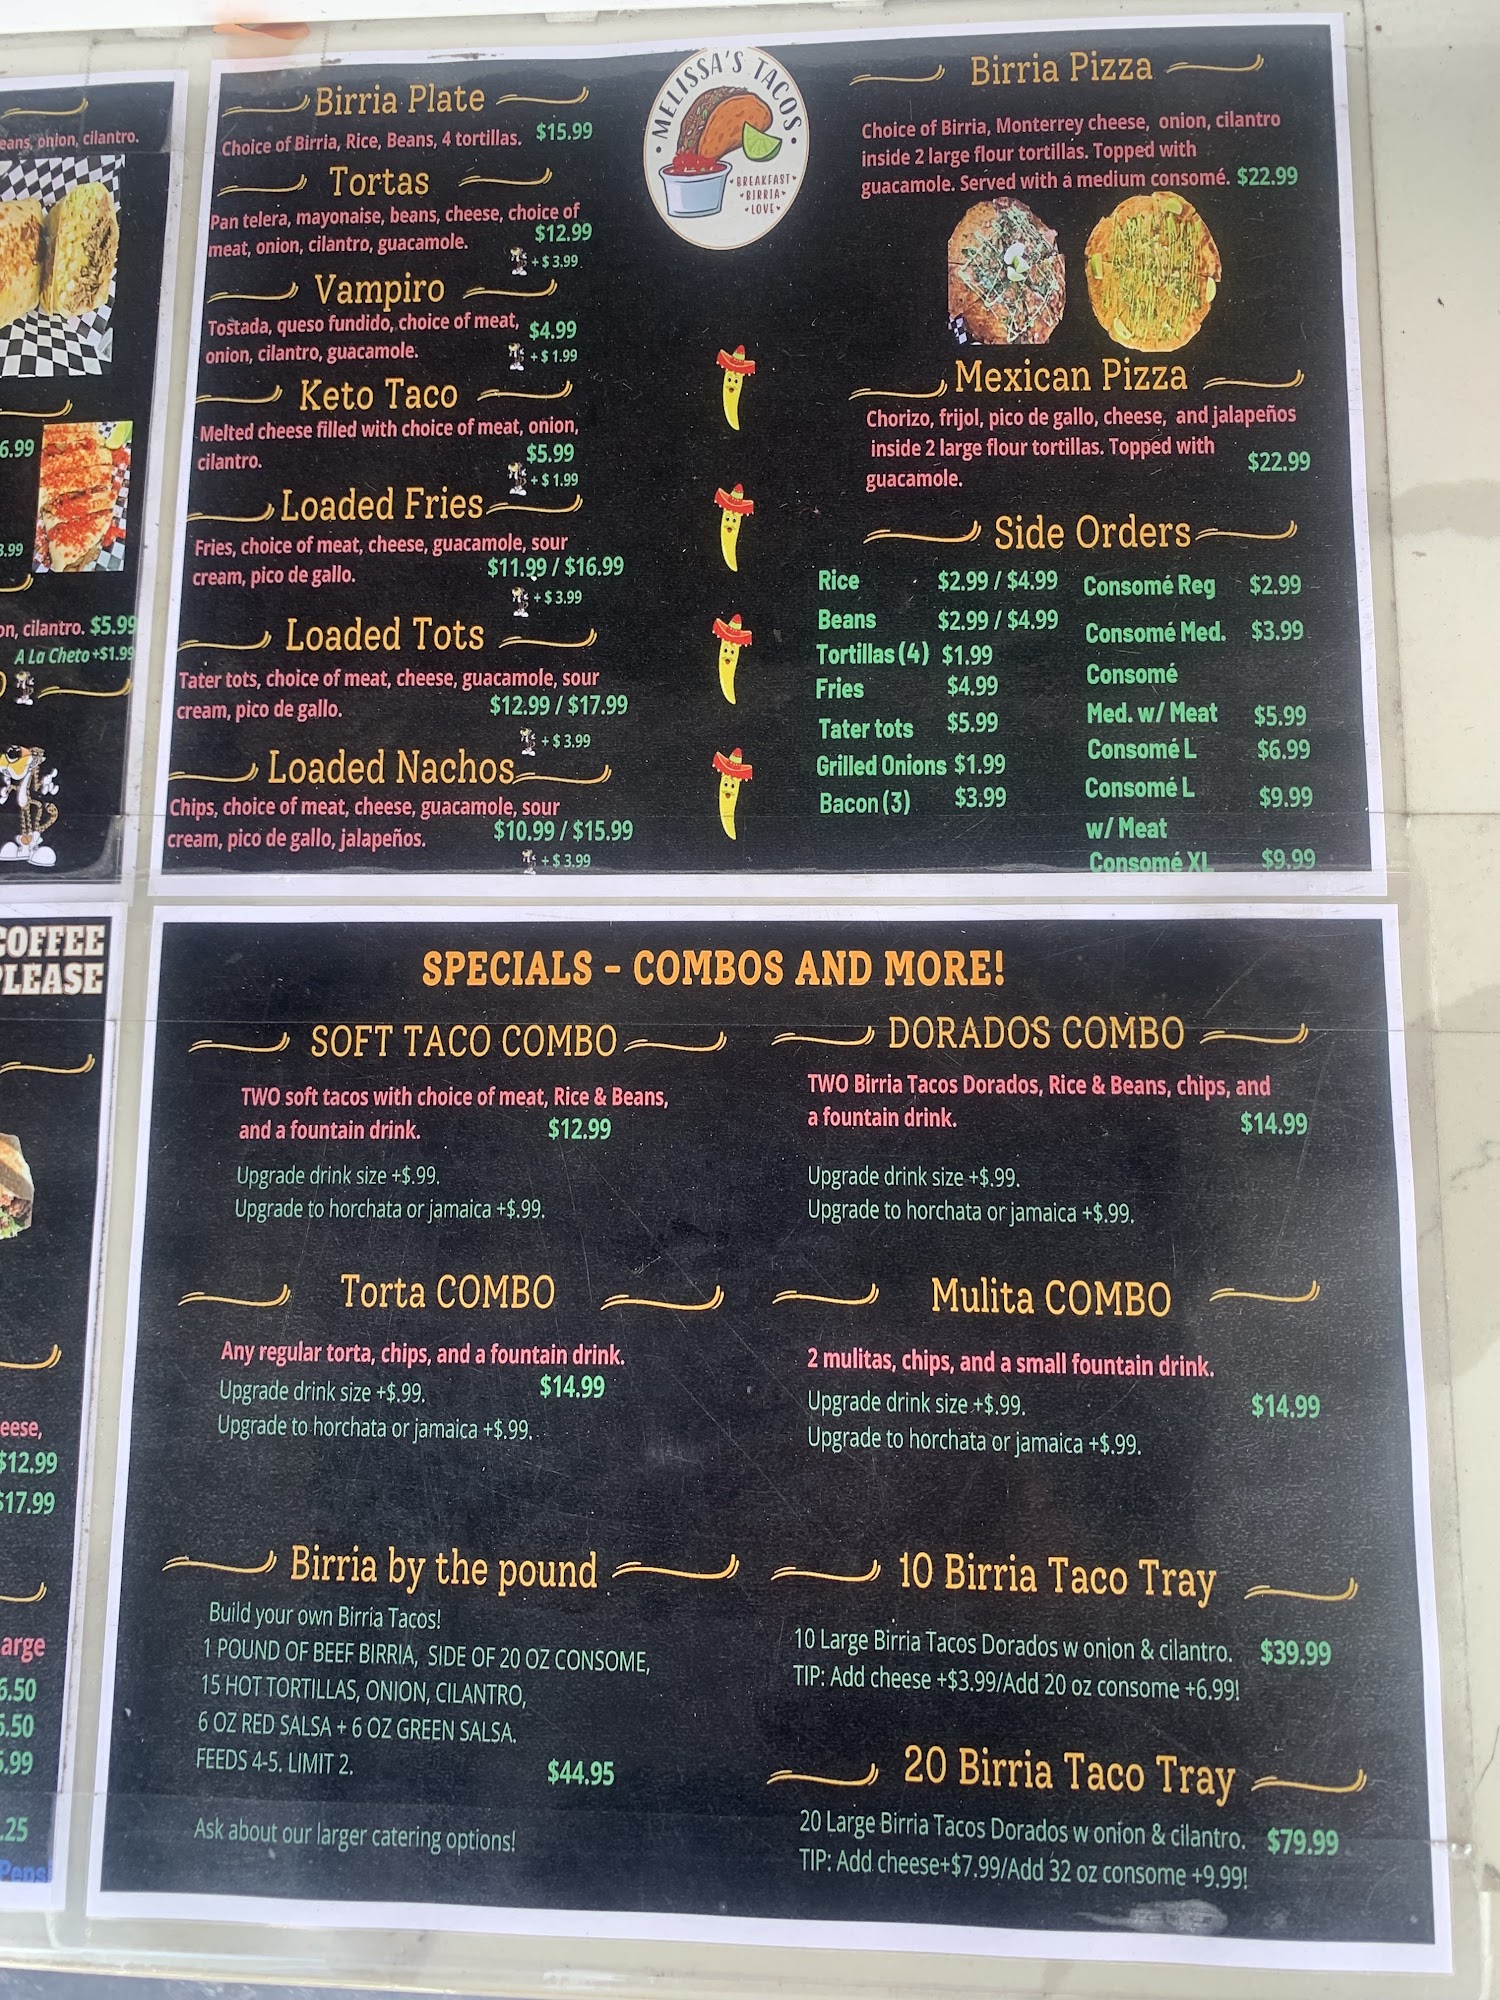 eans, onion, cilantro.
6.99
3.99
on, cilantro. $5.99
A La Cheto +$1.99
COFFEE
PLEASE
eese,
$12.99
$17.99
arge
6.50
6.50
.99
.25
Pepsi
Birria Plate
Choice of Birria, Rice, Beans, 4 tortillas. $15.99
Tortas
Pan telera, mayonaise, beans, cheese, choice of
meat, onion, cilantro, guacamole. $12.99
+ $ 3.99
Vampiro
Tostada, queso fundido, choice of meat, $4.99
onion, cilantro, guacamole.
+ $ 1.99
Keto Taco
Melted cheese filled with choice of meat, onion,
cilantro. $5.99
+ $ 1.99
Loaded Fries
Fries, choice of meat, cheese, guacamole, sour
cream, pico de gallo. $11.99 / $16.99
+ $ 3.99
Loaded Tots
Tater tots, choice of meat, cheese, guacamole, sour
cream, pico de gallo. $12.99 / $17.99
+ $ 3.99
Loaded Nachos
Chips, choice of meat, cheese, guacamole, sour
cream, pico de gallo, jalapeños. $10.99 / $15.99
+ $ 3.99
MELISSA'S TACOS
BREAKFAST
BIRRIA
LOVE
Birria Pizza
Choice of Birria, Monterrey cheese, onion, cilantro
inside 2 large flour tortillas. Topped with
guacamole. Served with a medium consomé. $22.99
Mexican Pizza
Chorizo, frijol, pico de gallo, cheese, and jalapeños
inside 2 large flour tortillas. Topped with
guacamole. $22.99
Side Orders
Rice $2.99 / $4.99
Beans $2.99 / $4.99
Tortillas (4) $1.99
Fries $4.99
Tater tots $5.99
Grilled Onions $1.99
Bacon (3) $3.99
Consomé Reg $2.99
Consomé Med. $3.99
Consomé
Med. w/ Meat $5.99
Consomé L $6.99
Consomé L $9.99
w/ Meat
Consomé XL $9.99
SPECIALS - COMBOS AND MORE!
SOFT TACO COMBO
TWO soft tacos with choice of meat, Rice & Beans,
and a fountain drink. $12.99
Upgrade drink size +$.99.
Upgrade to horchata or jamaica +$.99.
DORADOS COMBO
TWO Birria Tacos Dorados, Rice & Beans, chips, and
a fountain drink. $14.99
Upgrade drink size +$.99.
Upgrade to horchata or jamaica +$.99.
Torta COMBO
Any regular torta, chips, and a fountain drink.
Upgrade drink size +$.99. $14.99
Upgrade to horchata or jamaica +$.99.
Mulita COMBO
2 mulitas, chips, and a small fountain drink.
Upgrade drink size +$.99. $14.99
Upgrade to horchata or jamaica +$.99.
Birria by the pound
Build your own Birria Tacos!
1 POUND OF BEEF BIRRIA, SIDE OF 20 OZ CONSOME,
15 HOT TORTILLAS, ONION, CILANTRO,
6 OZ RED SALSA + 6 OZ GREEN SALSA.
FEEDS 4-5. LIMIT 2. $44.95
Ask about our larger catering options!
10 Birria Taco Tray
10 Large Birria Tacos Dorados w onion & cilantro. $39.99
TIP: Add cheese +$3.99/Add 20 oz consome +6.99!
20 Birria Taco Tray
20 Large Birria Tacos Dorados w onion & cilantro. $79.99
TIP: Add cheese+$7.99/Add 32 oz consome +9.99!